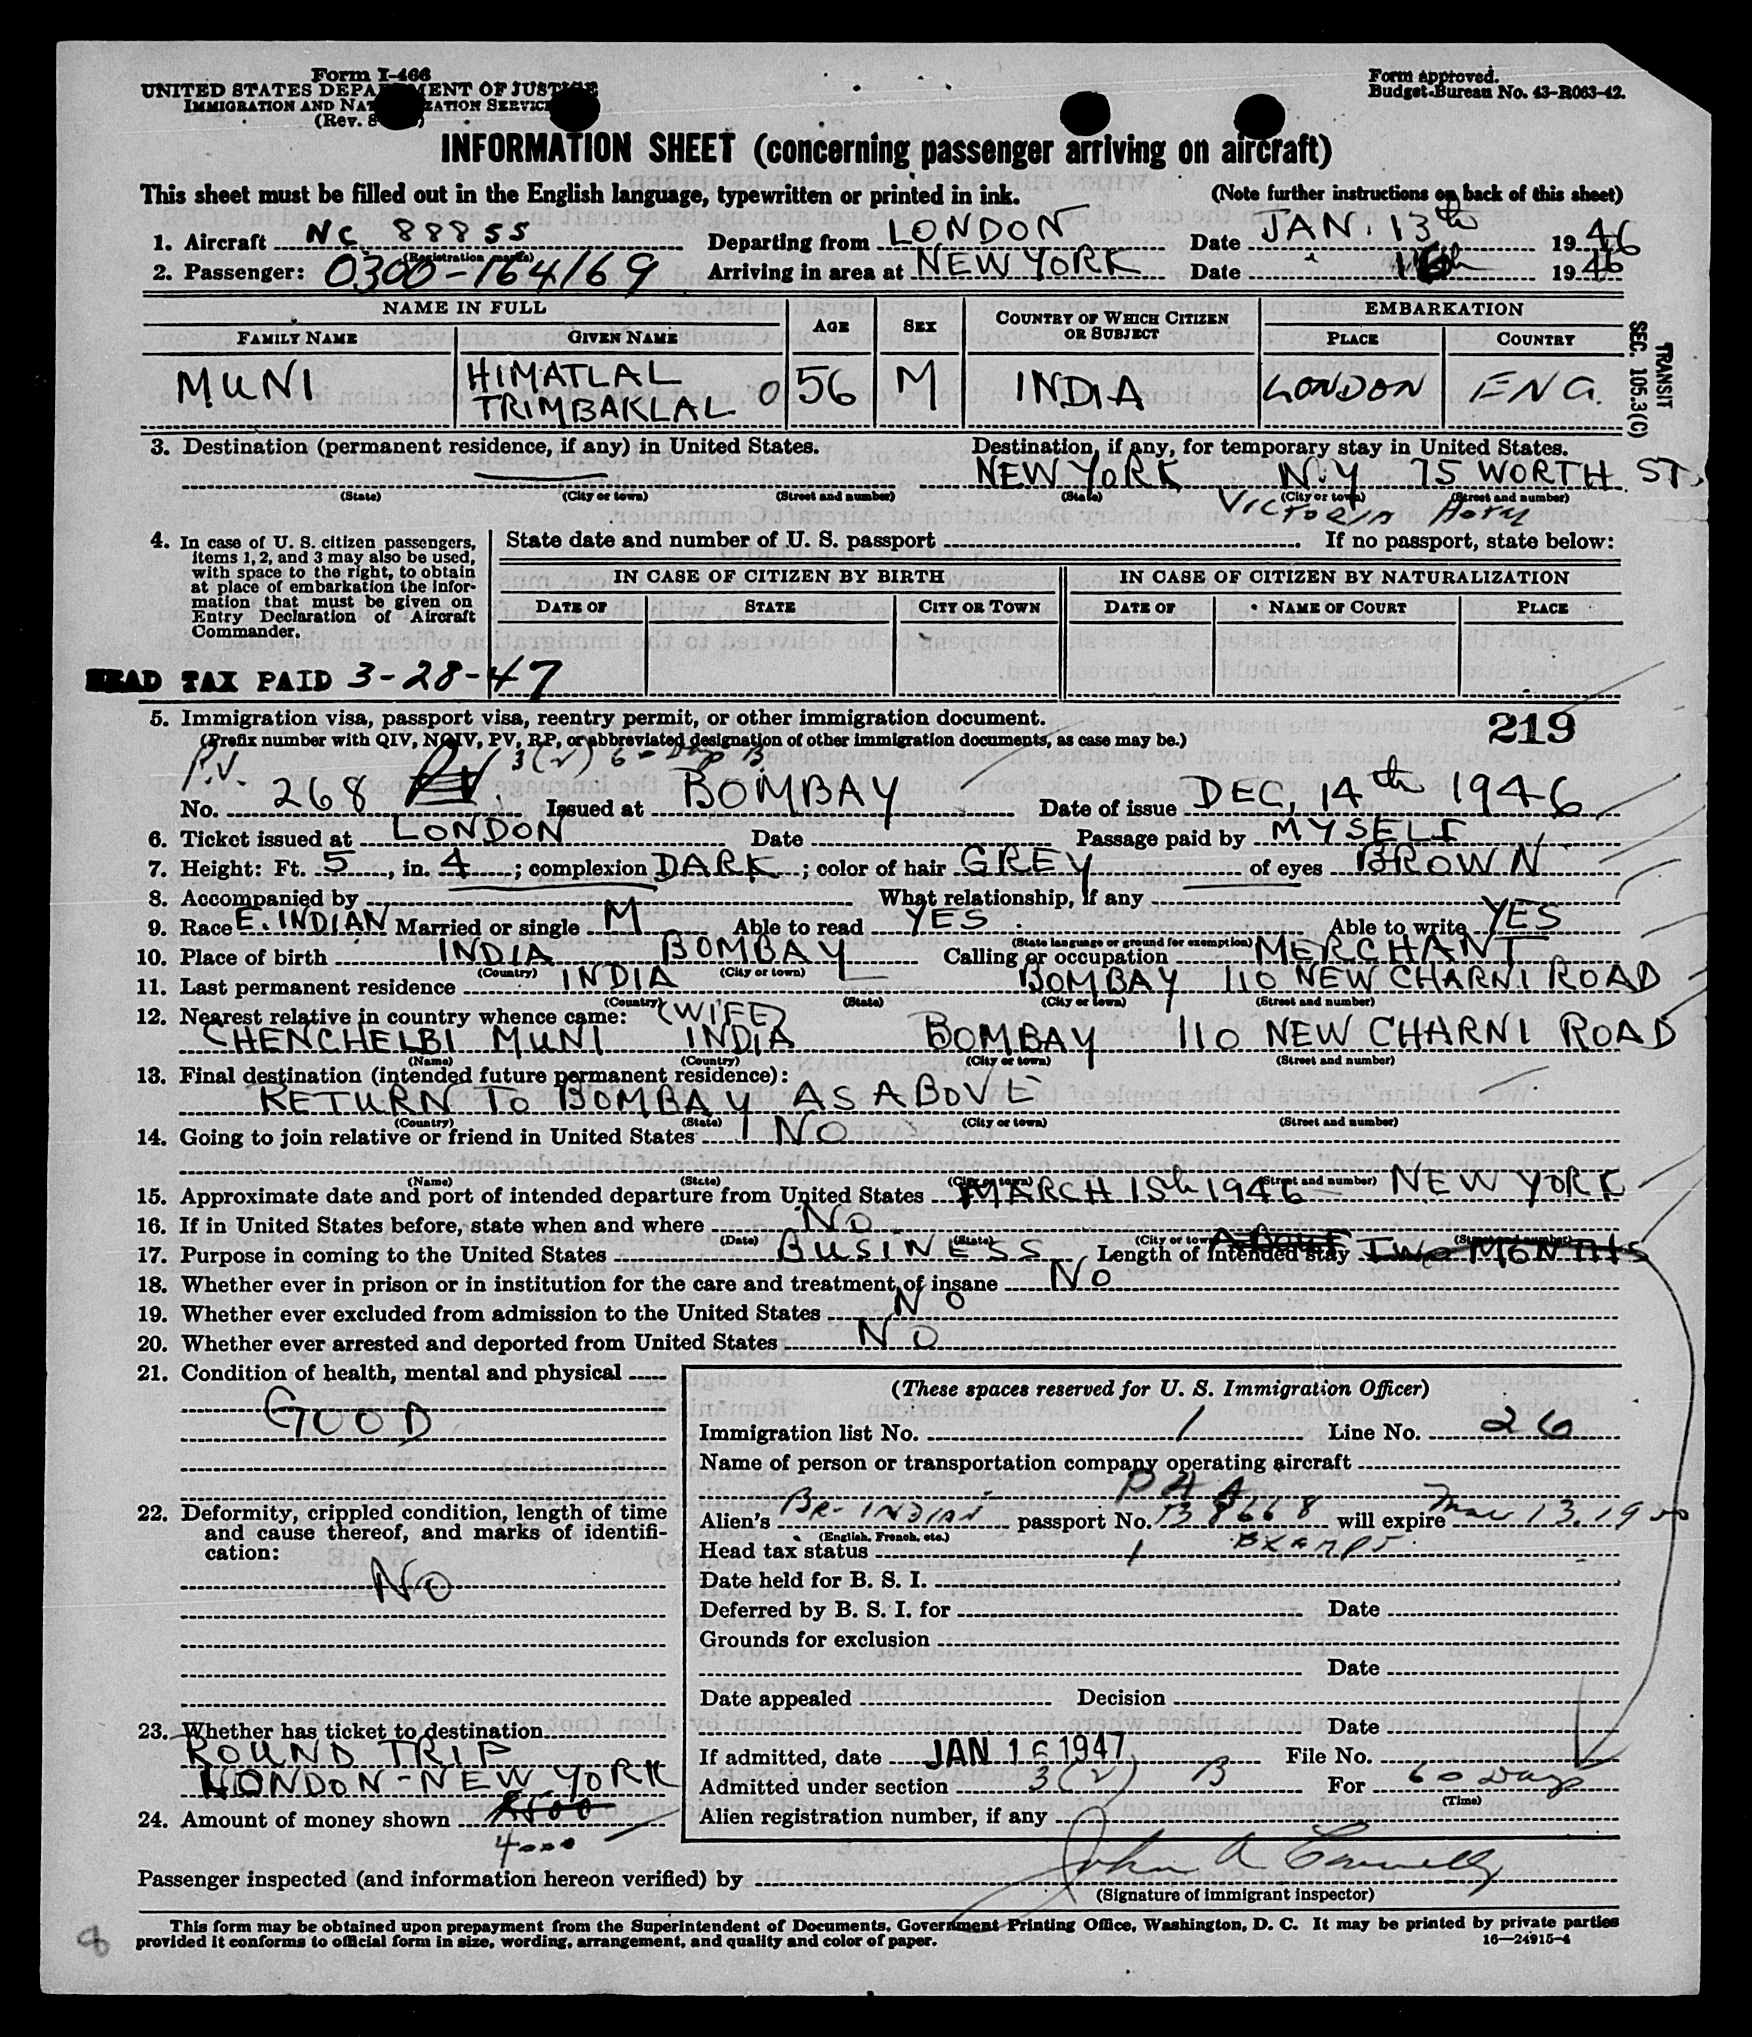 Form I-466
UNITED STATES DEPARTMENT OF JUSTICE
IMMIGRATION AND NATURALIZATION SERVICE
(Rev. 8
Form approved.
Budget Bureau No. 43-R063-42.
INFORMATION SHEET (concerning passenger arriving on aircraft)
This sheet must be filled out in the English language, typewritten or printed in ink. (Note further instructions on back of this sheet)
1. Aircraft NC 88855 Departing from LONDON Date JAN. 13th 1946
(Registration marks)
2. Passenger: 0300-164169 Arriving in area at NEW YORK Date 16th 1946
NAME IN FULL AGE SEX COUNTRY OF WHICH CITIZEN OR SUBJECT EMBARKATION
FAMILY NAME GIVEN NAME PLACE COUNTRY
MUNI HIMATLAL TRIMBAKLAL 0 56 M INDIA LONDON ENG.
TRANSIT
SEC. 105.3(C)
3. Destination (permanent residence, if any) in United States. Destination, if any, for temporary stay in United States.
NEW YORK N.Y 75 WORTH ST,
(State) (City or town) (Street and number) (State) (City or town) (Street and number)
VICTORIA HOTEL
4. In case of U. S. citizen passengers, items 1, 2, and 3 may also be used, with space to the right, to obtain at place of embarkation the information that must be given on Entry Declaration of Aircraft Commander.
State date and number of U. S. passport If no passport, state below:
IN CASE OF CITIZEN BY BIRTH IN CASE OF CITIZEN BY NATURALIZATION
DATE OF STATE CITY OR TOWN DATE OF NAME OF COURT PLACE
HEAD TAX PAID 3-28-47
5. Immigration visa, passport visa, reentry permit, or other immigration document. 219
(Prefix number with QIV, NQIV, PV, RP, or abbreviated designation of other immigration documents, as case may be.)
P.V. 3(2) 60 Days B
No. 268 PV. Issued at BOMBAY Date of issue DEC, 14th 1946
6. Ticket issued at LONDON Date Passage paid by MYSELF
7. Height: Ft. 5, in. 4; complexion DARK; color of hair GREY of eyes BROWN
8. Accompanied by What relationship, if any
9. Race E. INDIAN Married or single M Able to read YES Able to write YES
(State language or ground for exemption)
10. Place of birth INDIA BOMBAY Calling or occupation MERCHANT
(Country) (City or town)
11. Last permanent residence INDIA BOMBAY 110 NEW CHARNI ROAD
(Country) (State) (City or town) (Street and number)
12. Nearest relative in country whence came: (WIFE)
CHENCHELBI MUNI INDIA BOMBAY 110 NEW CHARNI ROAD
(Name) (Country) (City or town) (Street and number)
13. Final destination (intended future permanent residence):
RETURN TO BOMBAY AS ABOVE
(Country) (State) (City or town) (Street and number)
14. Going to join relative or friend in United States NO
(Name) (State) (City or town) (Street and number)
15. Approximate date and port of intended departure from United States MARCH 15th 1946 NEW YORK
16. If in United States before, state when and where NO
(Date) (State) (City or town) (Street and number)
17. Purpose in coming to the United States BUSINESS Length of intended stay ABOUT TWO MONTHS
18. Whether ever in prison or in institution for the care and treatment of insane NO
19. Whether ever excluded from admission to the United States NO
20. Whether ever arrested and deported from United States NO
21. Condition of health, mental and physical
GOOD
22. Deformity, crippled condition, length of time and cause thereof, and marks of identification:
NO
23. Whether has ticket to destination
ROUND TRIP
LONDON-NEW YORK
24. Amount of money shown
4000
(These spaces reserved for U. S. Immigration Officer)
Immigration list No. 1 Line No. 26
Name of person or transportation company operating aircraft
PAA
Alien's BR-INDIAN passport No. will expire Mar 13 1950
(English, French, etc.)
Head tax status EXEMPT
Date held for B. S. I.
Deferred by B. S. I. for Date
Grounds for exclusion
Date
Date appealed Decision
Date
If admitted, date JAN 16 1947 File No.
Admitted under section 3(2) B For 60 Days
(Time)
Alien registration number, if any
Passenger inspected (and information hereon verified) by John A Connelly
(Signature of immigrant inspector)
This form may be obtained upon prepayment from the Superintendent of Documents, Government Printing Office, Washington, D. C. It may be printed by private parties
provided it conforms to official form in size, wording, arrangement, and quality and color of paper.
16—24915-4
8